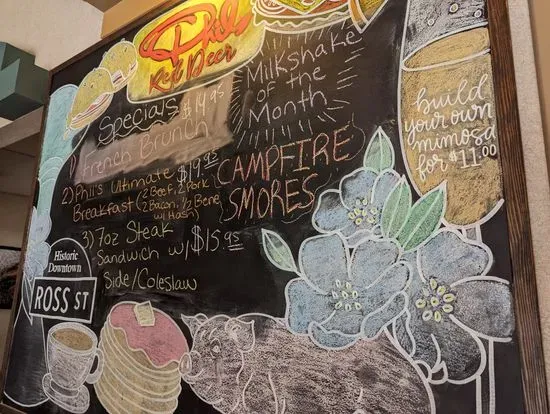 Phil's
Red Deer
Specials
1) French Brunch $14.95
2) Phil's Ultimate $19.95
Breakfast (2 Beef, 2 Pork
(2 Bacon, 2 Bene
w/ Hash)
3) 7oz Steak
Sandwich w/ $15.95
Side/Coleslaw
Milkshake
of the
Month
CAMPFIRE
SMORES
build
your own
mimosa
for $11.00
Historic
Downtown
ROSS ST